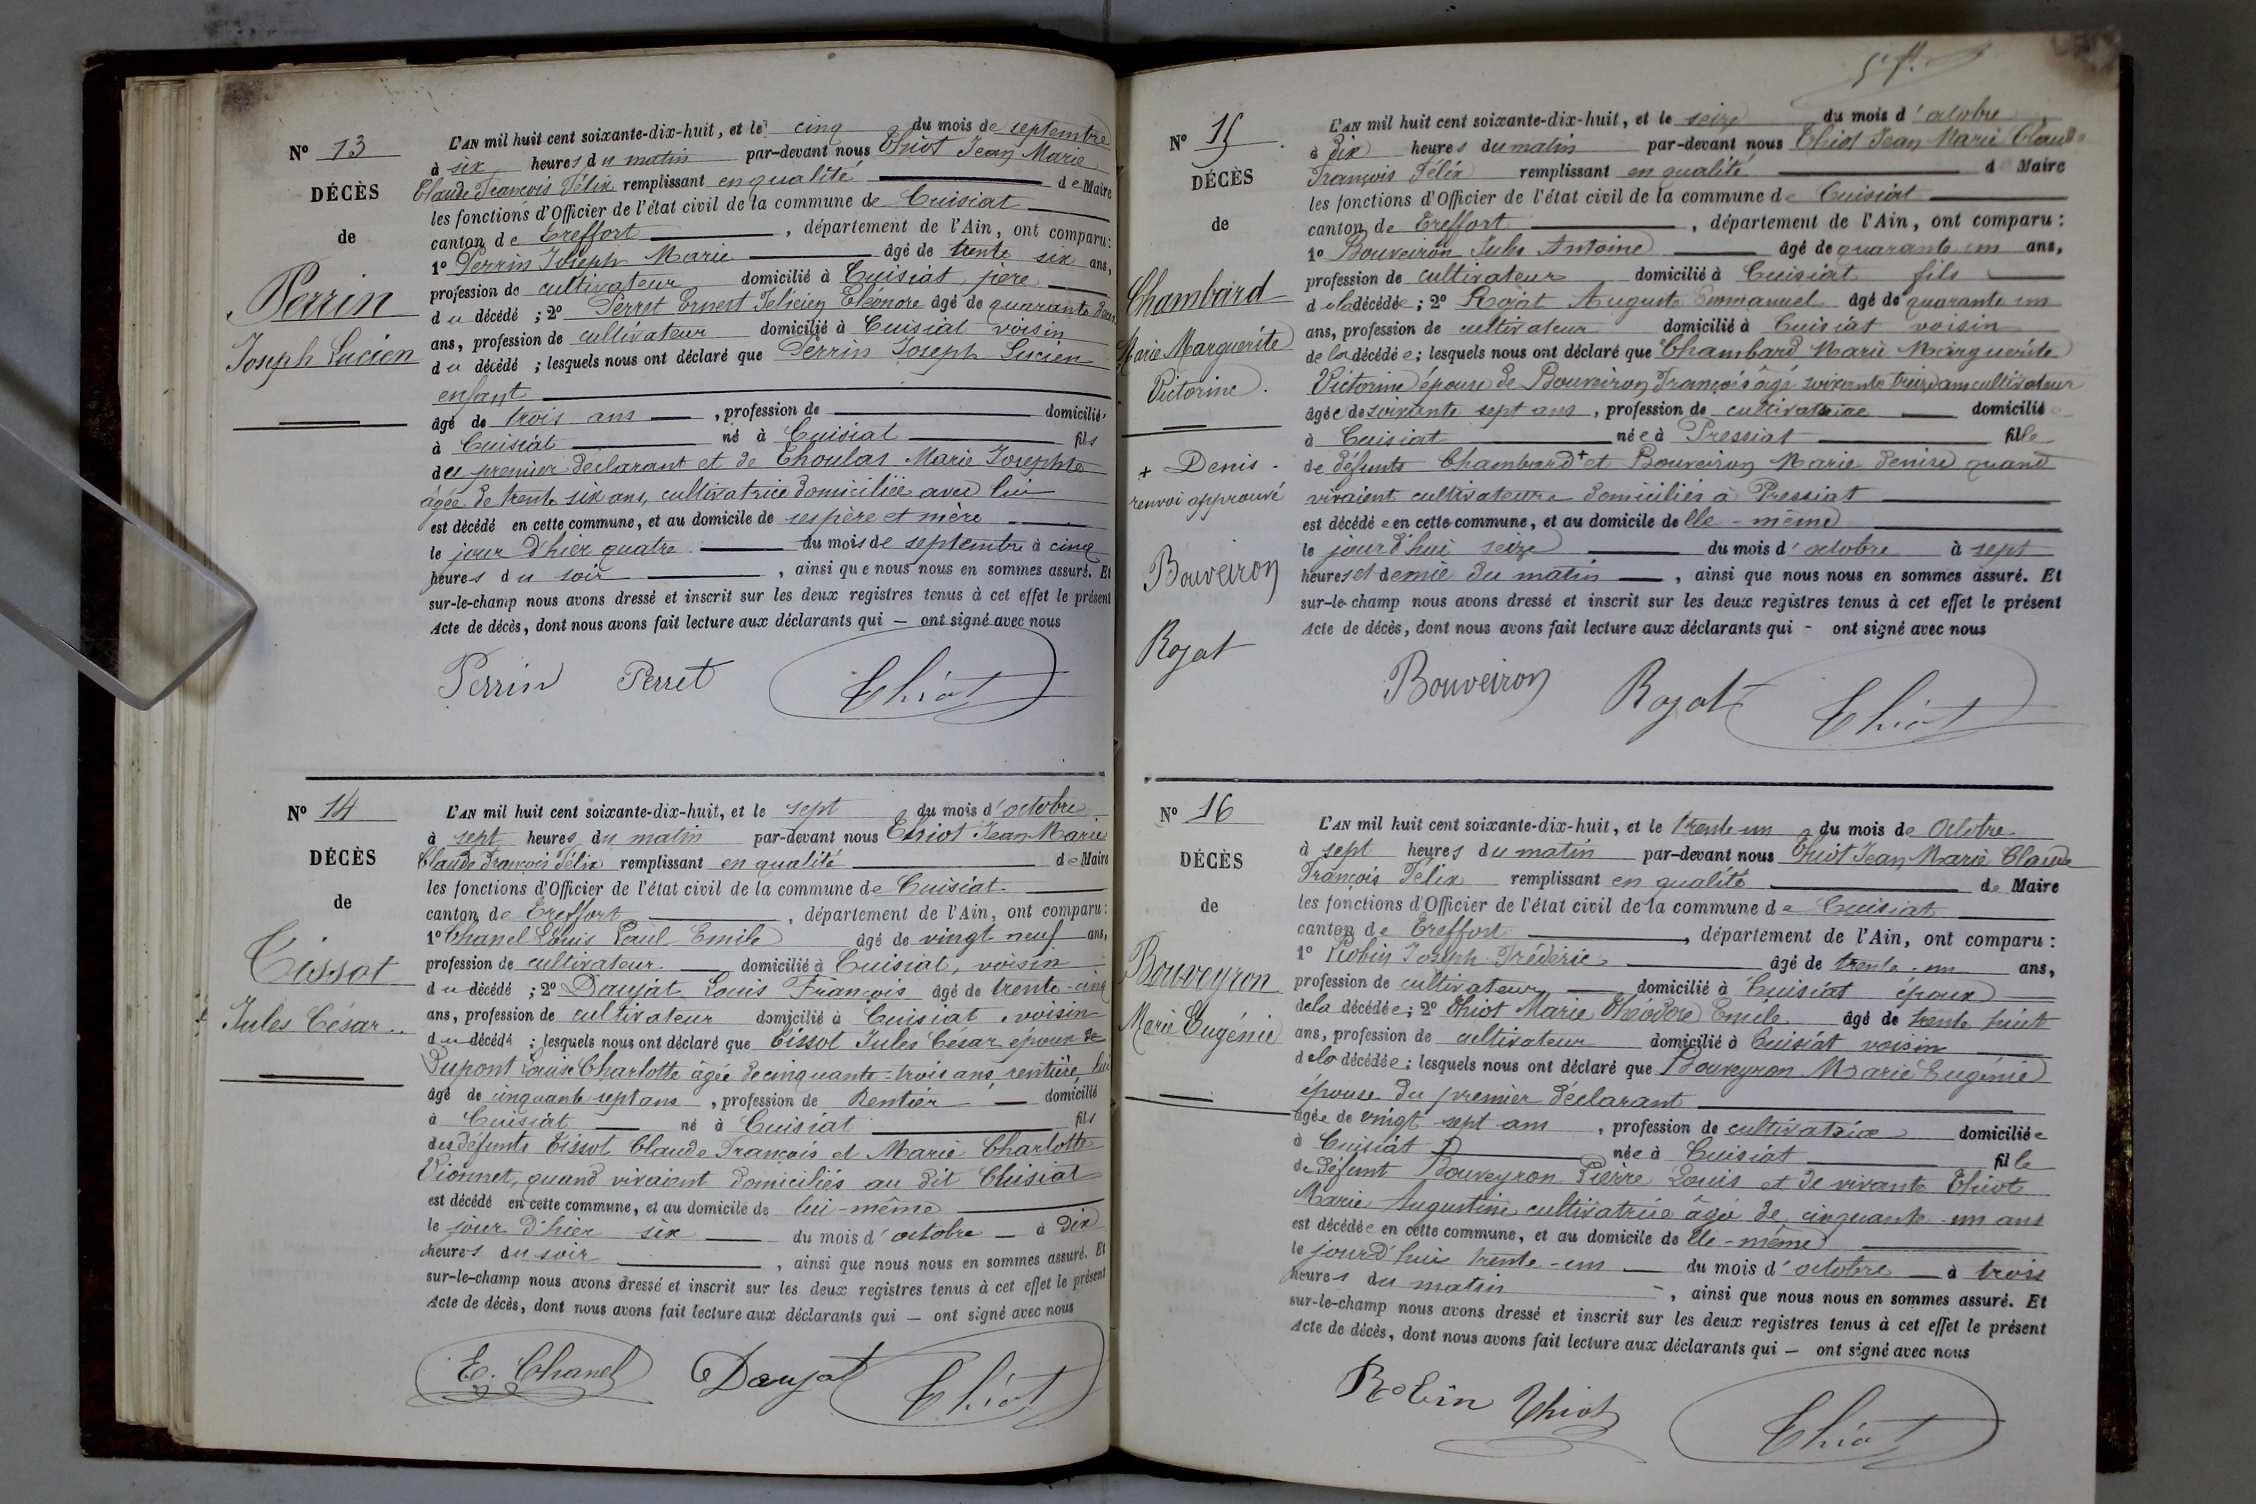 N° 13
DÉCÈS
de
Perrin
Joseph Lucien
L'AN mil huit cent soixante-dix-huit, et le cinq du mois de septembre
à six heures du matin par-devant nous Thiot Jean Marie
Claude François Félix remplissant en qualité de Maire
les fonctions d'Officier de l'état civil de la commune de Cuisiat
canton de Treffort, département de l'Ain, ont comparu:
1° Perrin Joseph Marie âgé de trente six ans,
profession de cultivateur domicilié à Cuisiat, père
du décédé ; 2° Perret Ernest Félicien Eléonore âgé de quarante deux
ans, profession de cultivateur domicilié à Cuisiat voisin
du décédé ; lesquels nous ont déclaré que Perrin Joseph Lucien
enfant
âgé de trois ans, profession de domicilié
à Cuisiat né à Cuisiat fils
du premier déclarant et de Thoulas Marie Josephte
âgée de trente six ans, cultivatrice domiciliée avec lui
est décédé en cette commune, et au domicile de ses père et mère
le jour d'hier quatre du mois de septembre à cinq
heures du soir, ainsi que nous nous en sommes assuré. Et
sur-le-champ nous avons dressé et inscrit sur les deux registres tenus à cet effet le présent
Acte de décès, dont nous avons fait lecture aux déclarants qui — ont signé avec nous
Perrin Perret Thiot
N° 14
DÉCÈS
de
Tissot
Jules César
L'AN mil huit cent soixante-dix-huit, et le sept du mois d'octobre
à sept heures du matin par-devant nous Thiot Jean Marie
Claude François Félix remplissant en qualité de Maire
les fonctions d'Officier de l'état civil de la commune de Cuisiat
canton de Treffort, département de l'Ain, ont comparu:
1° Chanel Louis Paul Emile âgé de vingt neuf ans,
profession de cultivateur domicilié à Cuisiat, voisin
du décédé ; 2° Daujat Louis François âgé de trente-cinq
ans, profession de cultivateur domicilié à Cuisiat, voisin
du décédé ; lesquels nous ont déclaré que Tissot Jules César époux de
Dupont Louise Charlotte âgée de cinquante-trois ans rentière lui
âgé de cinquante sept ans, profession de Rentier domicilié
à Cuisiat né à Cuisiat fils
des défunts Tissot Claude François et Marie Charlotte
Vionnet, quand vivaient domiciliés au dit Cuisiat
est décédé en cette commune, et au domicile de lui-même
le jour d'hier six du mois d'octobre à dix
heures du soir, ainsi que nous nous en sommes assuré. Et
sur-le-champ nous avons dressé et inscrit sur les deux registres tenus à cet effet le présent
Acte de décès, dont nous avons fait lecture aux déclarants qui — ont signé avec nous
E. Chanel Daujat Thiot
N° 15
DÉCÈS
de
Chambard
Marie Marguerite
Victorine.
+ Denis.
renvoi approuvé
Bouveiron
Rojat
L'AN mil huit cent soixante-dix-huit, et le seize du mois d'octobre
à dix heures du matin par-devant nous Thiot Jean Marie Claude
François Félix remplissant en qualité de Maire
les fonctions d'Officier de l'état civil de la commune de Cuisiat
canton de Treffort, département de l'Ain, ont comparu:
1° Bouveiron Jules Antoine âgé de quarante un ans,
profession de cultivateur domicilié à Cuisiat fils
de la décédée ; 2° Rojat Auguste Emmanuel âgé de quarante un
ans, profession de cultivateur domicilié à Cuisiat voisin
de la décédée ; lesquels nous ont déclaré que Chambard Marie Marguerite
Victorine épouse de Bouveiron François âgé soixante treize ans cultivateur
âgée de soixante sept ans, profession de cultivatrice domiciliée
à Cuisiat née à Pressiat fille
de défunts Chambard + et Bouveiron Marie Denise quand
vivaient cultivateurs domiciliés à Pressiat
est décédée en cette commune, et au domicile de elle-même
le jourd'hui seize du mois d'octobre à sept
heures et demie du matin, ainsi que nous nous en sommes assuré. Et
sur-le-champ nous avons dressé et inscrit sur les deux registres tenus à cet effet le présent
Acte de décès, dont nous avons fait lecture aux déclarants qui - ont signé avec nous
Bouveiron Rojat Thiot
N° 16
DÉCÈS
de
Bouveyron
Marie Eugénie
L'AN mil huit cent soixante-dix-huit, et le trente-un du mois de Octobre
à sept heures du matin par-devant nous Thiot Jean Marie Claude
François Félix remplissant en qualité de Maire
les fonctions d'Officier de l'état civil de la commune de Cuisiat
canton de Treffort, département de l'Ain, ont comparu:
1° Robin Joseph Frédéric âgé de trente-un ans,
profession de cultivateur domicilié à Cuisiat époux
de la décédée ; 2° Thiot Marie Théodore Emile âgé de trente huit
ans, profession de cultivateur domicilié à Cuisiat voisin
de la décédée ; lesquels nous ont déclaré que Bouveyron Marie Eugénie
épouse du premier déclarant
âgée de vingt sept ans, profession de cultivatrice domiciliée
à Cuisiat née à Cuisiat fille
de défunt Bouveyron Pierre Louis et de vivante Thiot
Marie Augustine cultivatrice âgée de cinquante-un ans
est décédée en cette commune, et au domicile de elle-même
le jourd'hui trente-un du mois d'octobre à trois
heures du matin, ainsi que nous nous en sommes assuré. Et
sur-le-champ nous avons dressé et inscrit sur les deux registres tenus à cet effet le présent
Acte de décès, dont nous avons fait lecture aux déclarants qui — ont signé avec nous
Robin Thiot Thiot